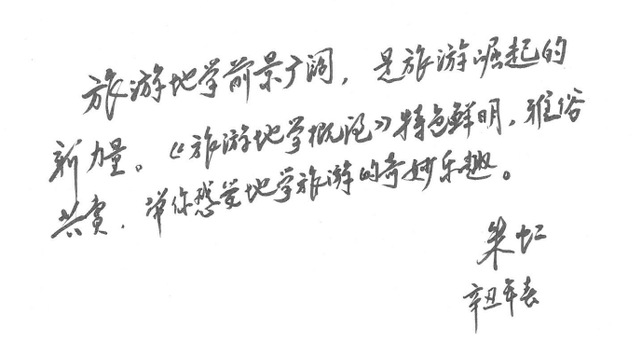 旅游地学前景广阔，是旅游崛起的
新力量。《旅游地学概论》特色鲜明，雅俗
共赏，带你感觉地学旅游的奇妙乐趣。
朱虹
辛丑年春